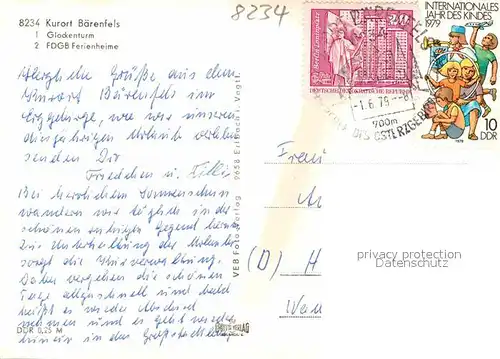 8234 Kurort Bärenfels
1 Glockenturm
2 FDGB Ferienheime
8234
Herzliche Grüße aus dem
Kurort Bärenfels im
Erzgebirge, wo wir unseren
diesjährigen Urlaub verleben
senden Dir
Friedchen u. Willi
Bei herrlichem Sonnenschein
wandern wir täglich in der
schönen Gegend herum.
Zur Unterhaltung der Urlauber
sorgt die Kurverwaltung.
Daher vergehen die schönen
Tage allzuschnell und bald
heißt es wieder Abschied
nehmen und es geht wieder
hinein in das
DDR 0,25 M
VEB Foto-Verlag 9658 Erlbach i. Vogtl.
Berlin, Leninplatz
20
DEUTSCHE DEMOKRATISCHE REPUBLIK
INTERNATIONALES
JAHR DES KINDES
1979
10
DDR
1979
-1.6.79-8
700m
DES OSTERZGEB
Frau
(D)
privacy protection
Datenschutz